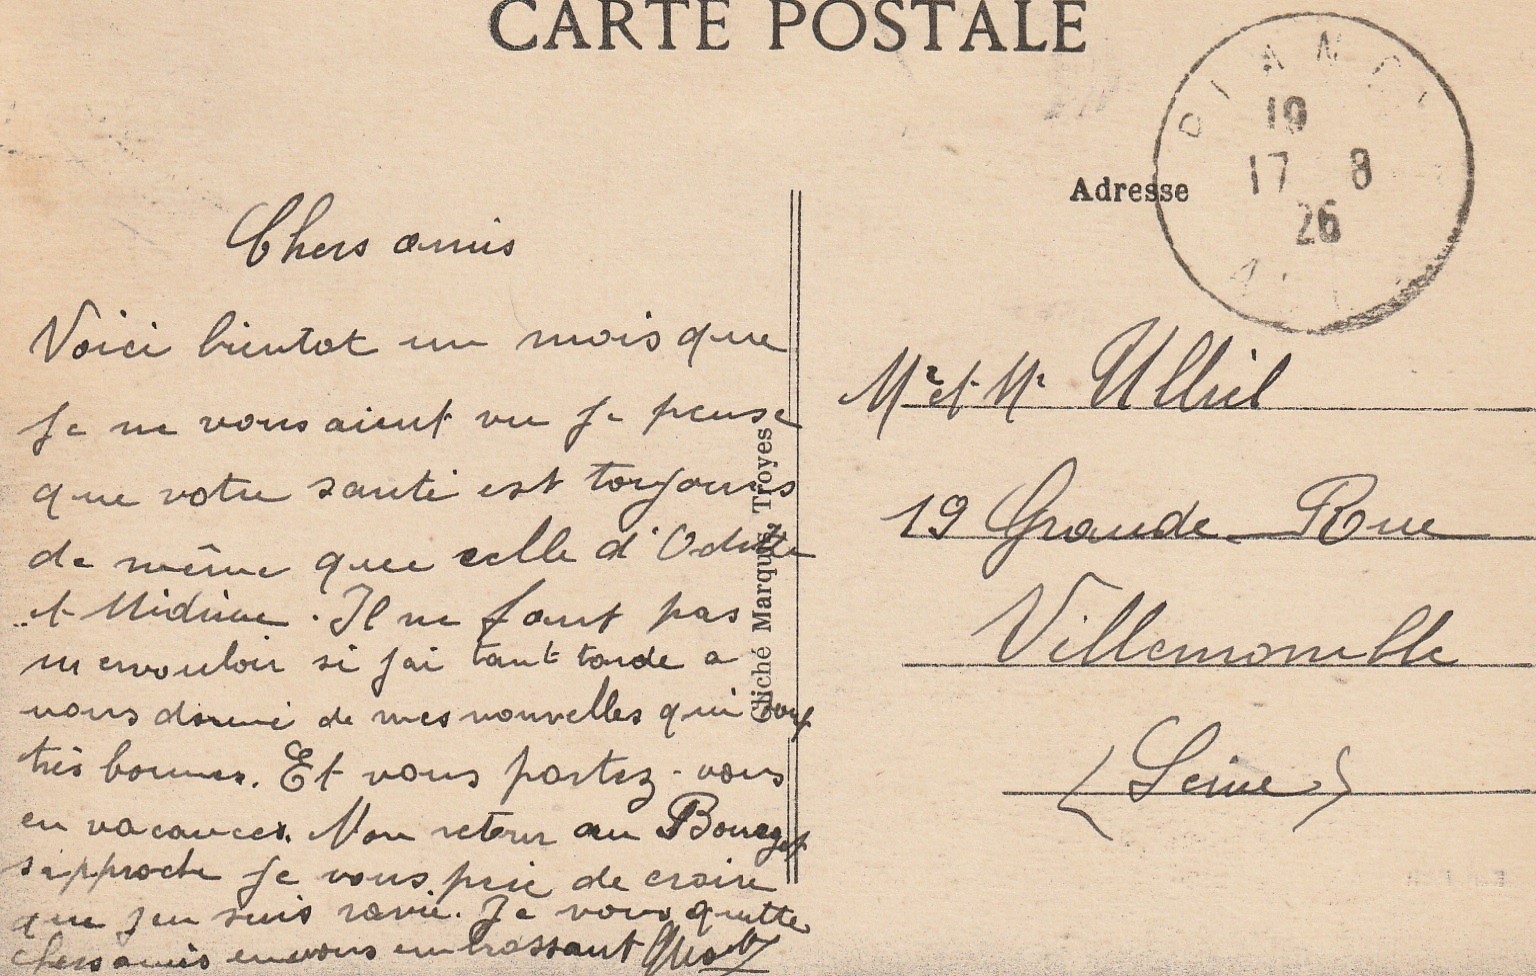 CARTE POSTALE
10
17 8
26
Adresse
Chers amis
Voici bientot un mois que
je ne vous aient vu je pense
que votre santé est toujours
de même que celle d'Odette
et . Il ne faut pas
m envouloir si jai tant tardé a
vous donné de mes nouvelles qui sont
très bonnes. Et vous partez-vous
en vacances. Mon retour au Bourget
sapproche je vous prie de croire
que jen suis ravie. Je vous quitte
chers amis en vous embrassant
Cliché Marquis, Troyes
Mr et Me
19 Grande Rue
Villemomble
(Seine)